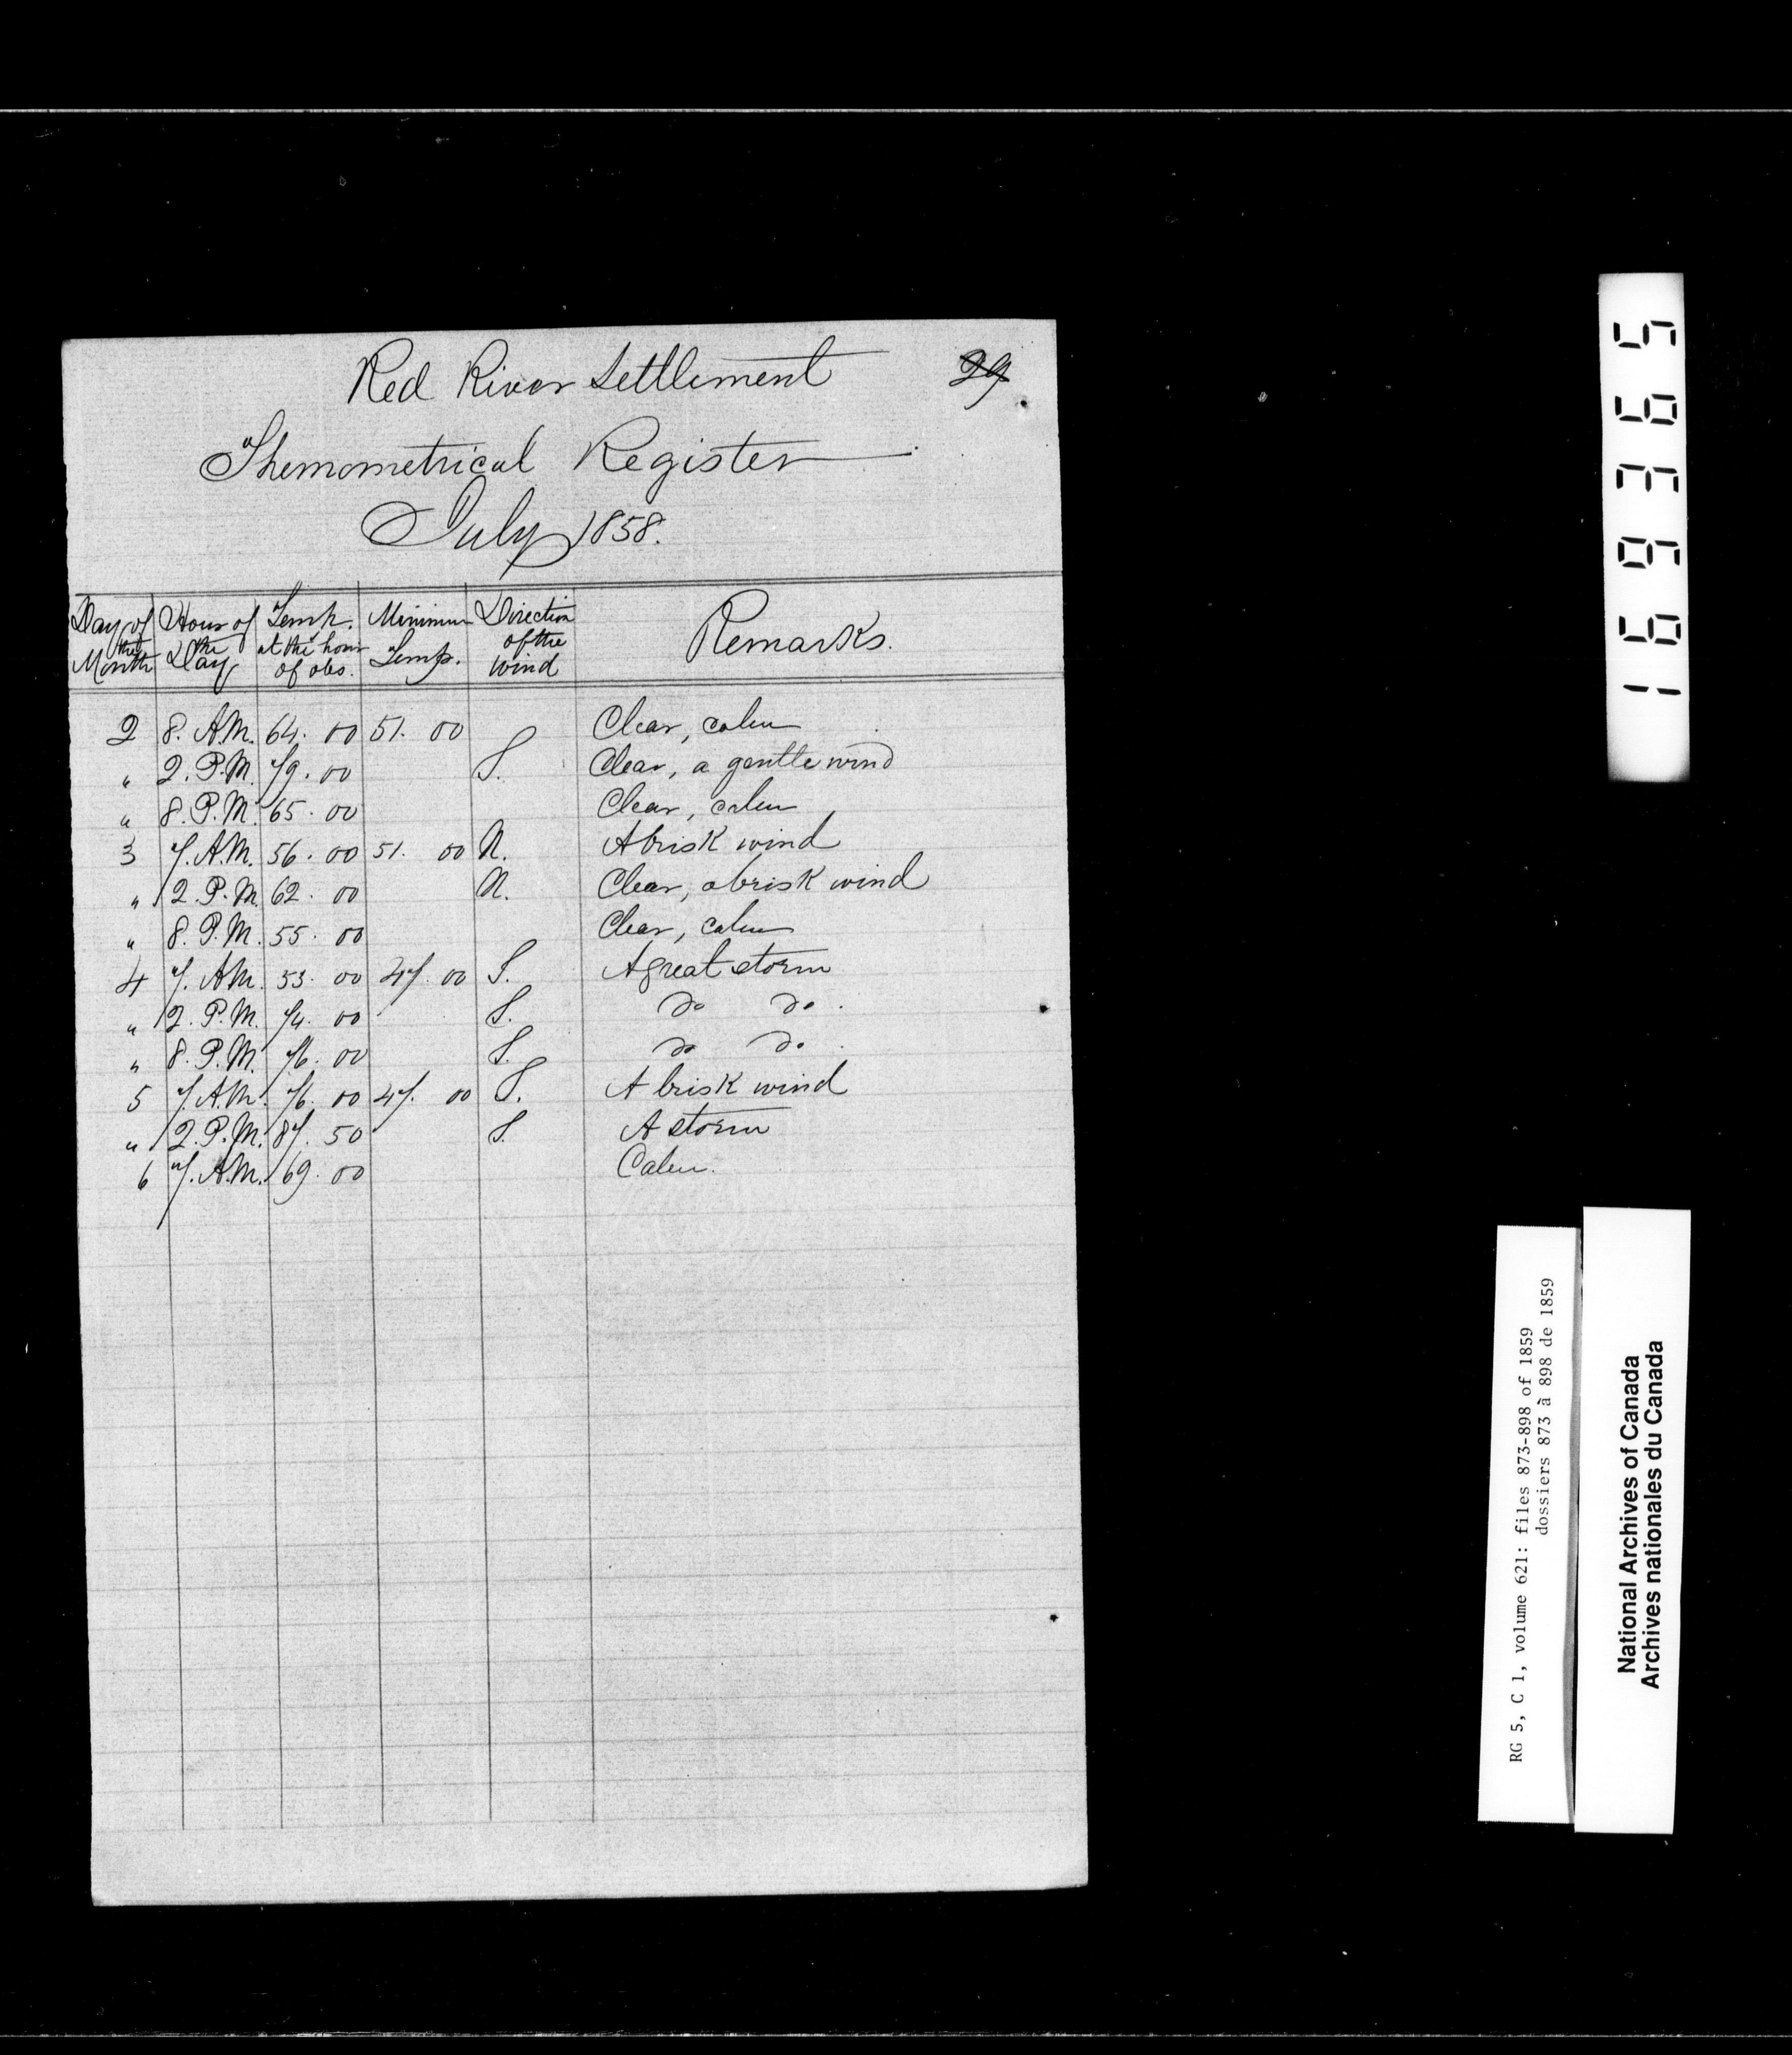 Red River Settlement
29
Themometrical Register
July 1858.
Day of the Month
Hour of the Day
Temp. at the hour of obs.
Minimum Temp.
Direction of the wind
Remarks.
2 8. A.M. 64. 00 51. 00 Clear, calm
" 2. P.M. 79. 00 S. Clear, a gentle wind
" 8. P.M. 65. 00 Clear, calm
3 7. A.M. 56. 00 51. 00 N. A brisk wind
" 2. P.M. 62. 00 N. Clear, a brisk wind
" 8. P.M. 55. 00 Clear, calm
4 7. A.M. 53. 00 47. 00 S. A great storm
" 2. P.M. 74. 00 S. do do.
" 8. P.M. 76. 00 S. do do.
5 7. A.M. 76. 00 47. 00 S. A brisk wind
" 2. P.M. 87. 50 S. A storm
6 7. A.M. 69. 00 Calm.
169365
RG 5, C 1, volume 621: files 873-898 of 1859
dossiers 873 à 898 de 1859
National Archives of Canada
Archives nationales du Canada